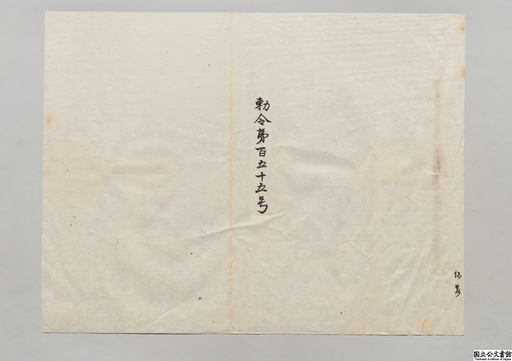 勅令第百五十五号
国立公文書館
National Archives of Japan